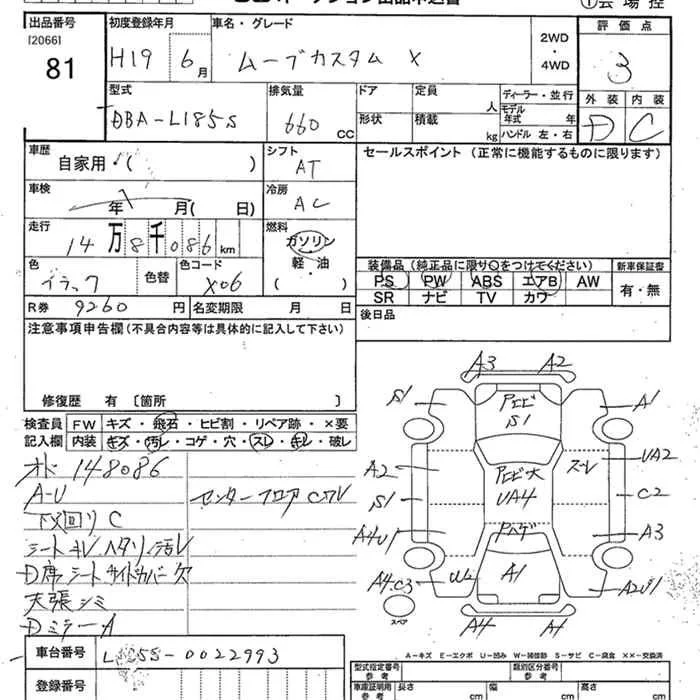 オークション出品申込書
①会場控
出品番号
[2066]
81
初度登録年月
H19 6月
車名・グレード
ムーブカスタム X
2WD・4WD
評価点
3
外装 内装
D C
型式
DBA-L185S
排気量
660 CC
ドア
形状
定員 人
積載 kg
ディーラー・並行
モデル年式 年
ハンドル 左・右
車歴
自家用・( )
シフト
AT
セールスポイント (正常に機能するものに限ります)
車検
年 月( 日)
冷房
AC
走行
14万8千086km
燃料
ガソリン・軽・油
( )
色
色替
色コード
X06
R券 9260 円
名変期限 月 日
装備品 (純正品に限り○をつけてください)
PS PW ABS エアB AW
SR ナビ TV カワ
新車保証書
有・無
後日品
注意事項申告欄(不具合内容等は具体的に記入して下さい)
修復歴 有 〔箇所 〕
検査員記入欄
FW キズ・飛石・ヒビ割・リペア跡・×要
内装 キズ・汚レ・コゲ・穴・スレ・キレ・破レ
オド 148086
A-U
下回り C
シート キレ ヘタリ 汚レ
D席シートサイドカバー欠
天張シミ
Dミラー A
センターフロア
A3 A2
S1 A1
S1
A2 UA2
UA4
S1 C2
A4U1 A3
A4.C3 W2 A1 A2U1
スペア
A4 A1
A-キズ E-エクボ U-凹み W-補修跡 S-サビ C-腐食 XX-交換済
車台番号
-0022993
登録番号
型式指定番号 参考
類別区分番号 参考
車庫証明用 参考
長さ cm
幅 cm
高さ cm